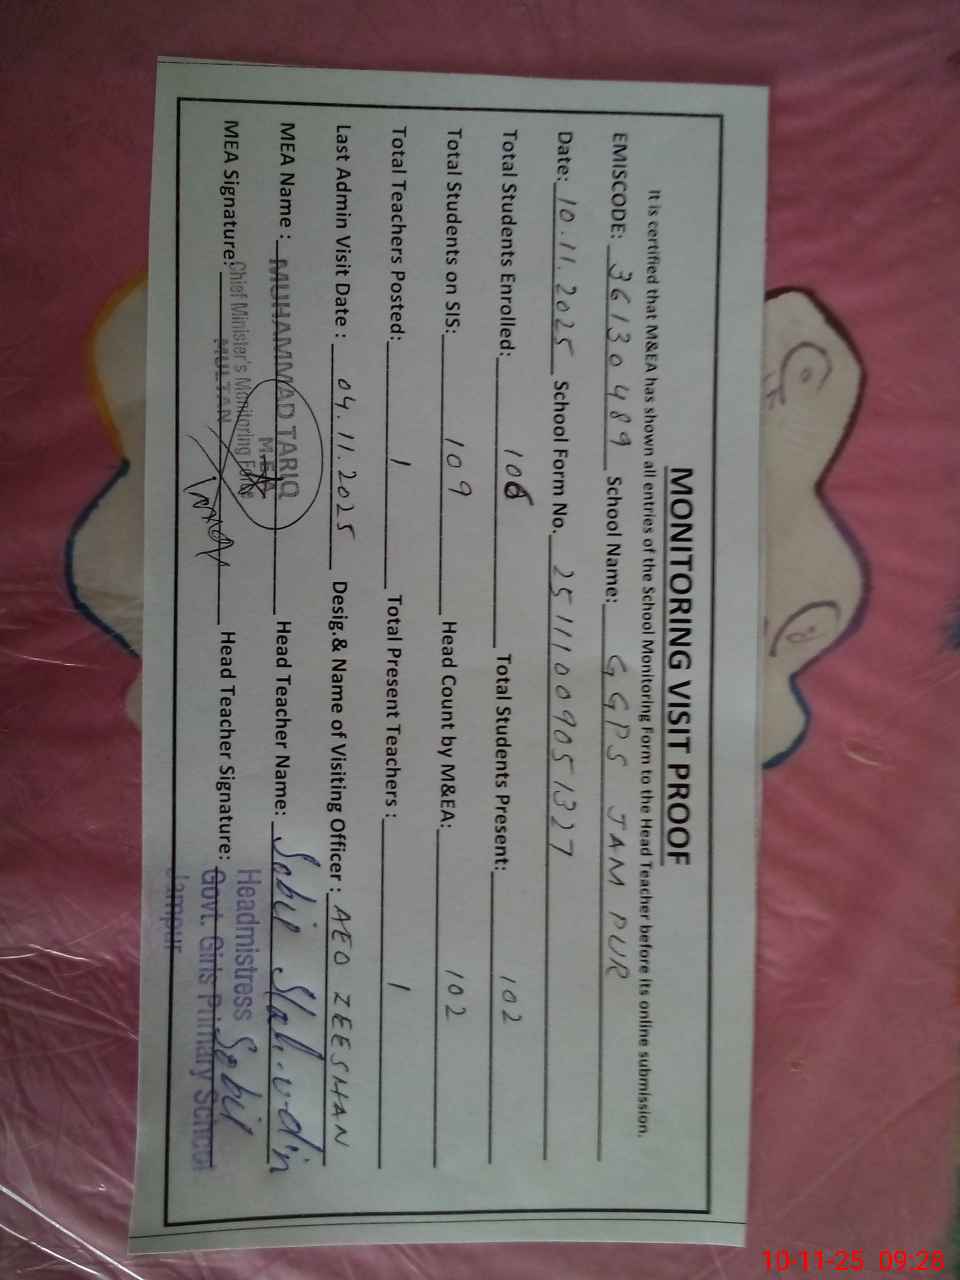 MONITORING VISIT PROOF
It is certified that M&EA has shown all entries of the School Monitoring Form to the Head Teacher before its online submission.
EMISCODE: 36130489 School Name: GGPS JAMPUR
Date: 10.11.2025 School Form No. 25111009051327
Total Students Enrolled: 106 Total Students Present: 102
Total Students on SIS: 109 Head Count by M&EA: 102
Total Teachers Posted: 1 Total Present Teachers : 1
Last Admin Visit Date : 04.11.2025 Desig.& Name of Visiting Officer : AEO ZEESHAN
MEA Name : MUHAMMAD TARIQ Head Teacher Name:
M.E.A
MEA Signature: Head Teacher Signature:
Chief Minister's Monitoring Force
MULTAN
Headmistress
Govt. Girls Primary School
Jampur
10-11-25 09:28